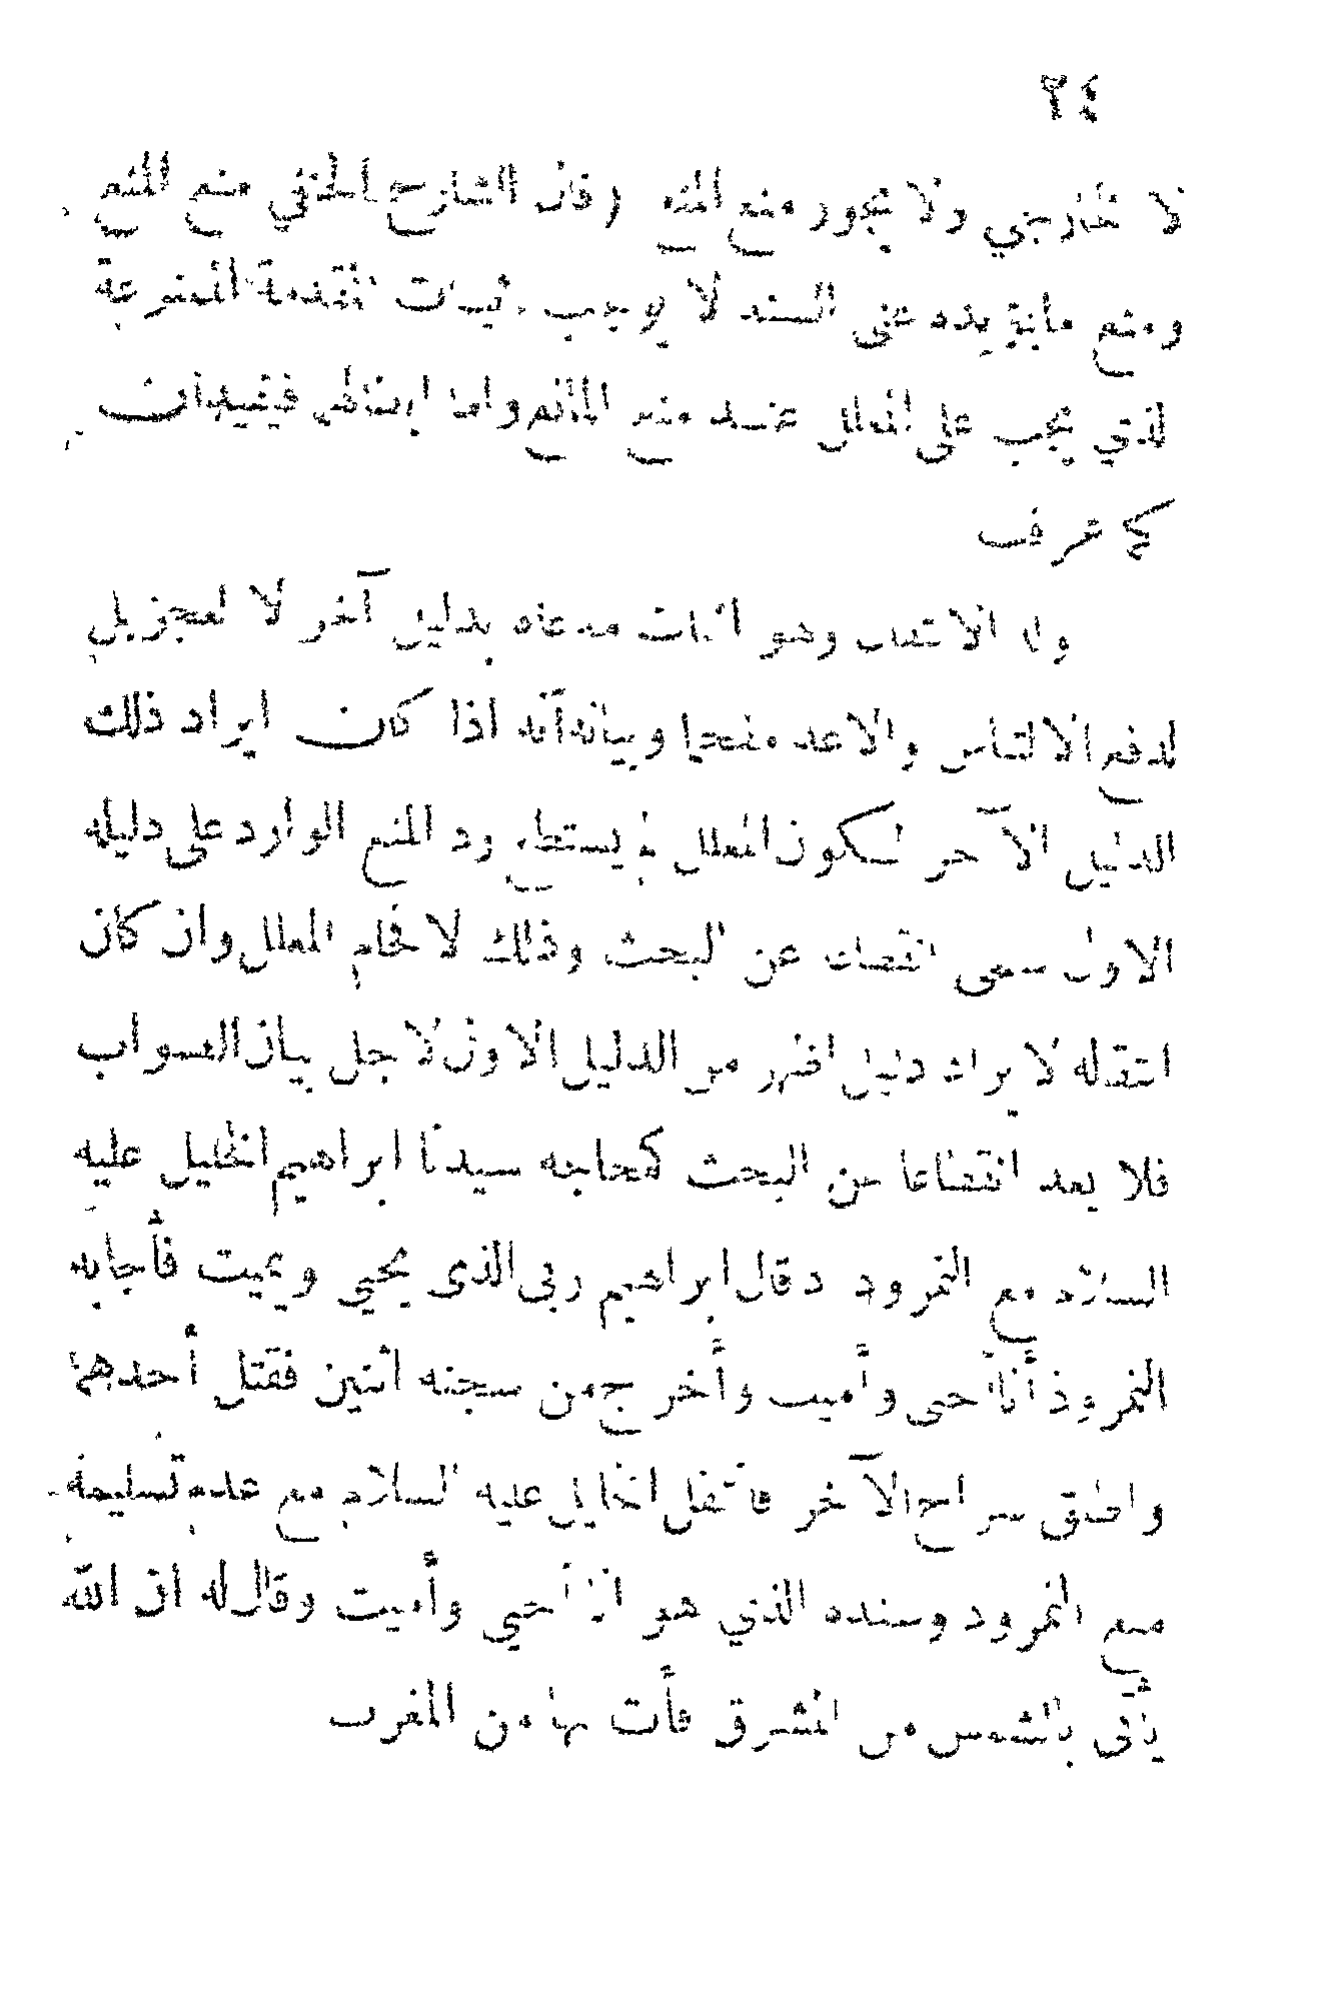 ٢٤
لا خارجي ولا يجوز منع المنع (قال الشارح الحنفي منع المنع
ومنع ما يؤيده عنى السند لا يوجب اثبات المقدمة الممنوعة
الذي يجب على المعلل عند منع المانع واما ابطاله فيفيد ان
كما عرف
واما الانتقال وهو اثبات مدعاه بدليل آخر لا لعجز بل
لدفع الالتباس والا عد مفحما وبيانه أنه اذا كان ايراد ذلك
الدليل الآخر لكون المعلل لم يستطع رد المنع الوارد على دليله
الاول سمى انقطاعا عن البحث وذلك لافحام المعلل وان كان
انتقاله لايراد دليل اظهر من الدليل الاول لاجل بيان الصواب
فلا يعد انقطاعا عن البحث كمحاجه سيدنا ابراهيم الخليل عليه
السلام مع النمرود فقال ابراهيم ربى الذى يحيي ويميت فأجابه
النمروذ أنا أحى وأميت وأخرج من سجنه اثنين فقتل أحدهما
واطلق سراح الآخر فانتقل الخليل عليه السلام مع عدم تسليمه
منع النمرود وسنده الذي هو انا أحيي وأميت وقال له ان الله
يأتى بالشمس من المشرق فأت بها من المغرب